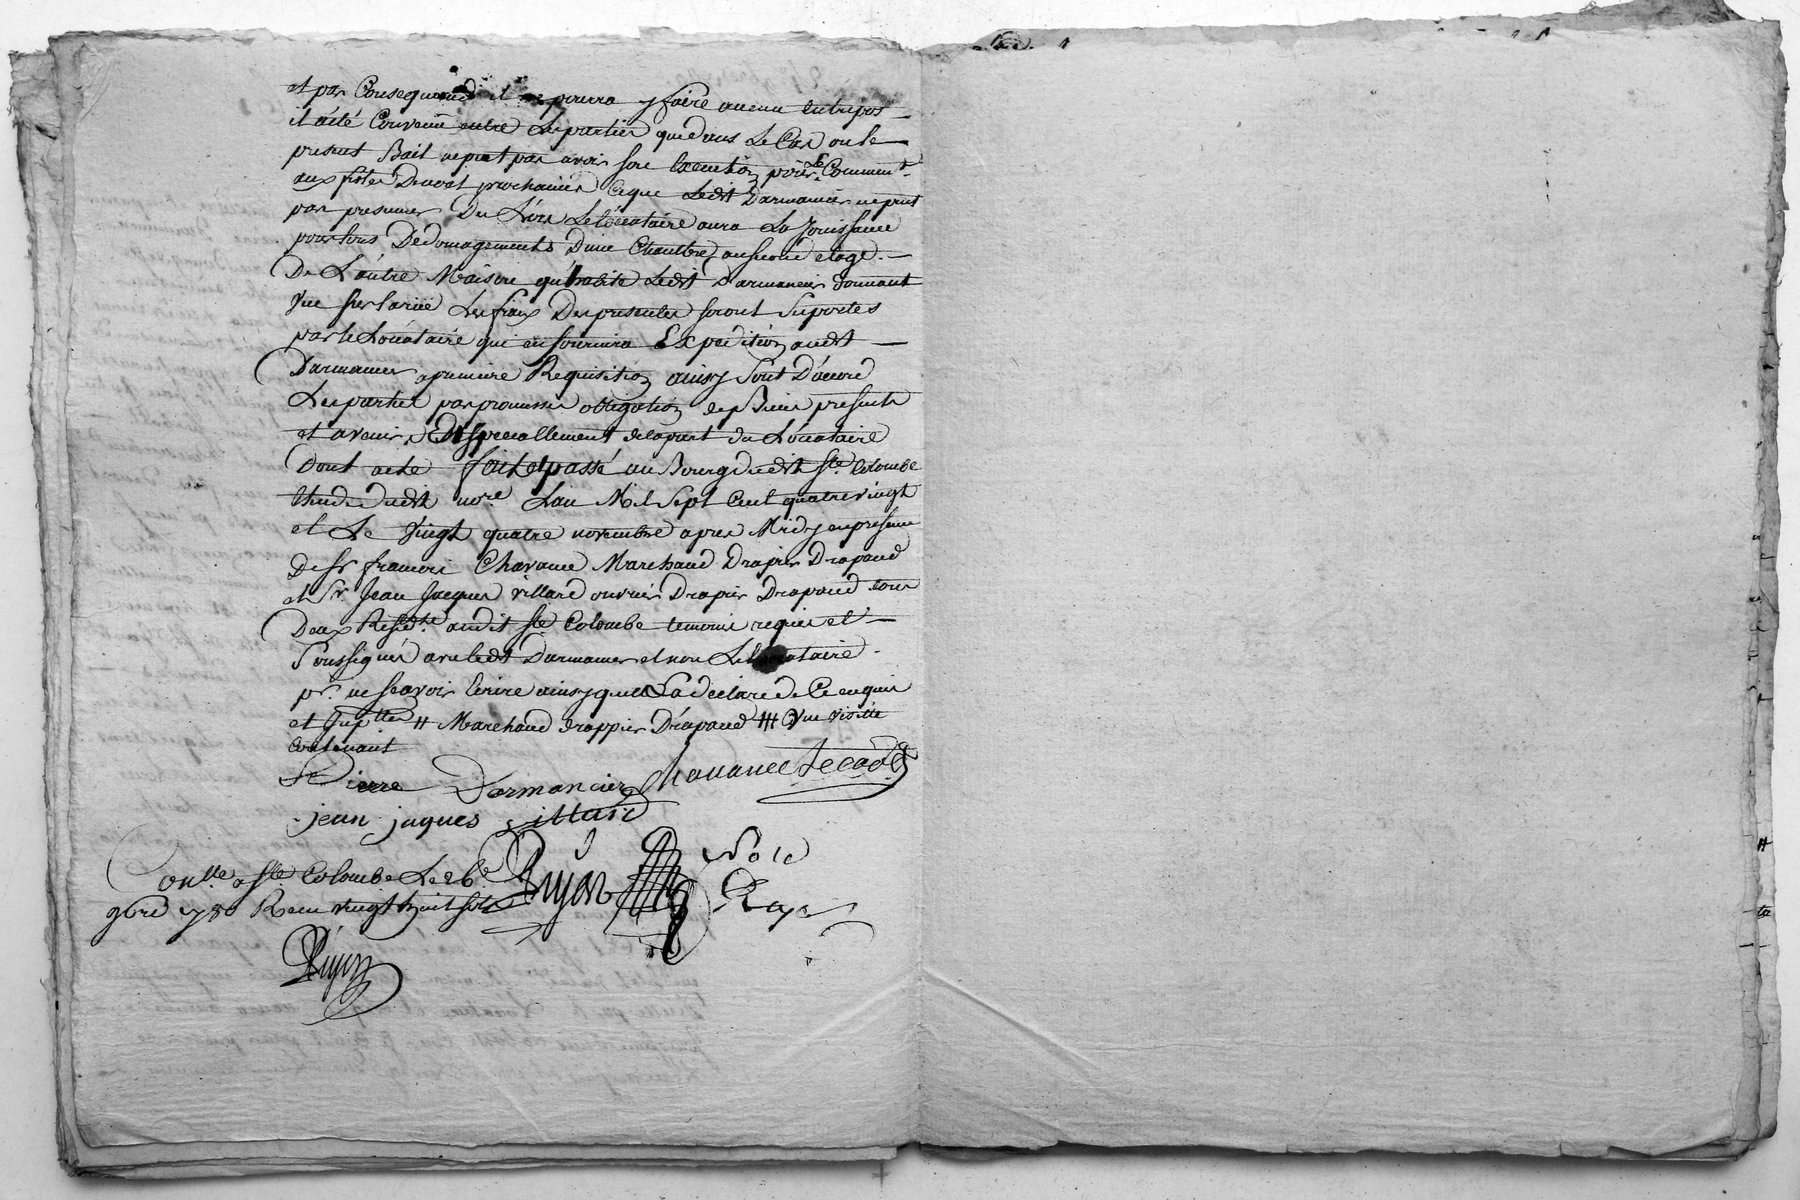 et par Consequand il ne pourra y faire aucun entrepos
il a été Convenu entre les parties que dans Le Cas ou le
present Bail ne peut pas avoir son Execution pour Le Commencemt
aux fêtes De noel prochaines Ce que Ledit Darmancier ne peut
pas presumer Du Lors Le Locataire aura La Jouissance
pour tous Dedomagements Dune Chambre au second etage
De L'autre Maison qu'habite Ledit Darmancier donnant
Vue sur la rüe Les fraix Des presentes seront Suportés
par le Locataire qui en fournira Expedition audit
Darmancier a premiere Requisition ainsy Sont D'acord
Les parties par promesses obligation de Biens presents
et avenir Et specialement de la part du Locataire
Dont acte fait et passé au Bourg dudit Ste Colombe
Etude dudit nore Lan Mil Sept Cent quatre vingt
et Le Vingt quatre novembre apres Midy en presence
De Sr francois Chavance Marchand Drapier Drapand
et Sr Jean Jacques Villard ouvrier Drapier Drapand tous
Deux Residts audit Ste Colombe temoins requis et
Soussignés avec ledit Darmancier et non Le Locataire
pr ne scavoir Ecrire ainsy quil La declaré de Ce enquis
et Interpellé # Marchand drappier Drapand ## Vue visitée
contenant
Pierre Darmancier Chavance Le cadet
jean jaques villard
Conlle a Ste Colombe Le 26e
9bre 1780 Recu vingt huit sols